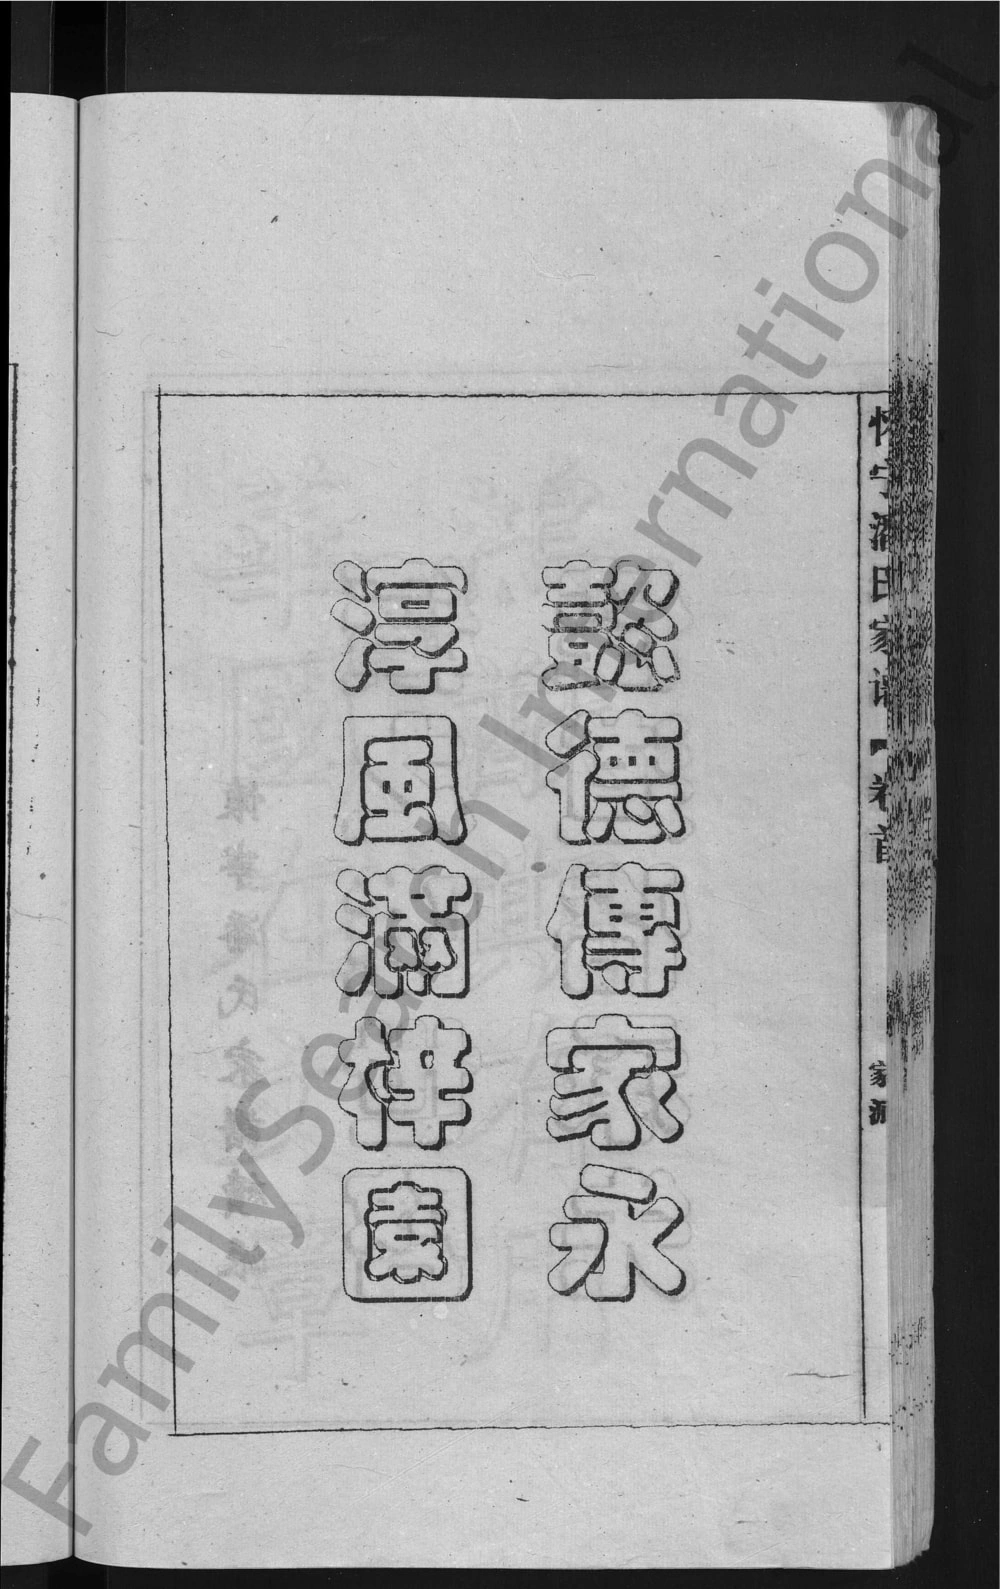 懿德傳家永
淳風滿梓園
怀宁潘氏家谱【卷首
家源
FamilySearch International